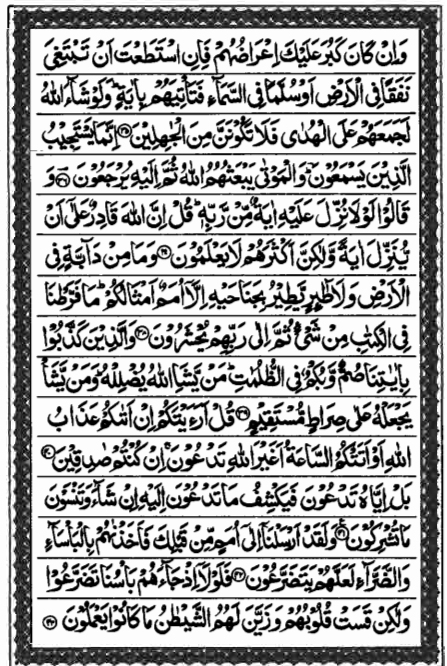 وَاِنْ كَانَ كَبُرَ عَلَيْكَ اِعْرَاضُهُمْ فَاِنِ اسْتَطَعْتَ اَنْ تَبْتَغِيَ
نَفَقًا فِي الْاَرْضِ اَوْ سُلَّمًا فِي السَّمَآءِ فَتَاْتِيَهُمْ بِاٰيَةٍ ؕ وَلَوْ شَآءَ اللّٰهُ
لَجَمَعَهُمْ عَلَى الْهُدٰى فَلَا تَكُوْنَنَّ مِنَ الْجٰهِلِيْنَ ﴿۳۵﴾ اِنَّمَا يَسْتَجِيْبُ
الَّذِيْنَ يَسْمَعُوْنَ ؕ وَالْمَوْتٰى يَبْعَثُهُمُ اللّٰهُ ثُمَّ اِلَيْهِ يُرْجَعُوْنَ ﴿۳۶﴾ وَ
قَالُوْا لَوْلَا نُزِّلَ عَلَيْهِ اٰيَةٌ مِّنْ رَّبِّهٖ ؕ قُلْ اِنَّ اللّٰهَ قَادِرٌ عَلٰۤى اَنْ
يُّنَزِّلَ اٰيَةً وَّلٰكِنَّ اَكْثَرَهُمْ لَا يَعْلَمُوْنَ ﴿۳۷﴾ وَمَا مِنْ دَآبَّةٍ فِي
الْاَرْضِ وَلَا طٰٓئِرٍ يَّطِيْرُ بِجَنَاحَيْهِ اِلَّاۤ اُمَمٌ اَمْثَالُكُمْ ؕ مَا فَرَّطْنَا
فِي الْكِتٰبِ مِنْ شَيْءٍ ثُمَّ اِلٰى رَبِّهِمْ يُحْشَرُوْنَ ﴿۳۸﴾ وَالَّذِيْنَ كَذَّبُوْا
بِاٰيٰتِنَا صُمٌّ وَّبُكْمٌ فِي الظُّلُمٰتِ ؕ مَنْ يَّشَاِ اللّٰهُ يُضْلِلْهُ ؕ وَمَنْ يَّشَاْ
يَجْعَلْهُ عَلٰى صِرَاطٍ مُّسْتَقِيْمٍ ﴿۳۹﴾ قُلْ اَرَءَيْتَكُمْ اِنْ اَتٰىكُمْ عَذَابُ
اللّٰهِ اَوْ اَتَتْكُمُ السَّاعَةُ اَغَيْرَ اللّٰهِ تَدْعُوْنَ ۚ اِنْ كُنْتُمْ صٰدِقِيْنَ ﴿۴۰﴾
بَلْ اِيَّاهُ تَدْعُوْنَ فَيَكْشِفُ مَا تَدْعُوْنَ اِلَيْهِ اِنْ شَآءَ وَتَنْسَوْنَ
مَا تُشْرِكُوْنَ ﴿۴۱﴾ وَلَقَدْ اَرْسَلْنَاۤ اِلٰۤى اُمَمٍ مِّنْ قَبْلِكَ فَاَخَذْنٰهُمْ بِالْبَاْسَآءِ
وَالضَّرَّآءِ لَعَلَّهُمْ يَتَضَرَّعُوْنَ ﴿۴۲﴾ فَلَوْلَاۤ اِذْ جَآءَهُمْ بَاْسُنَا تَضَرَّعُوْا
وَلٰكِنْ قَسَتْ قُلُوْبُهُمْ وَزَيَّنَ لَهُمُ الشَّيْطٰنُ مَا كَانُوْا يَعْمَلُوْنَ ﴿۴۳﴾